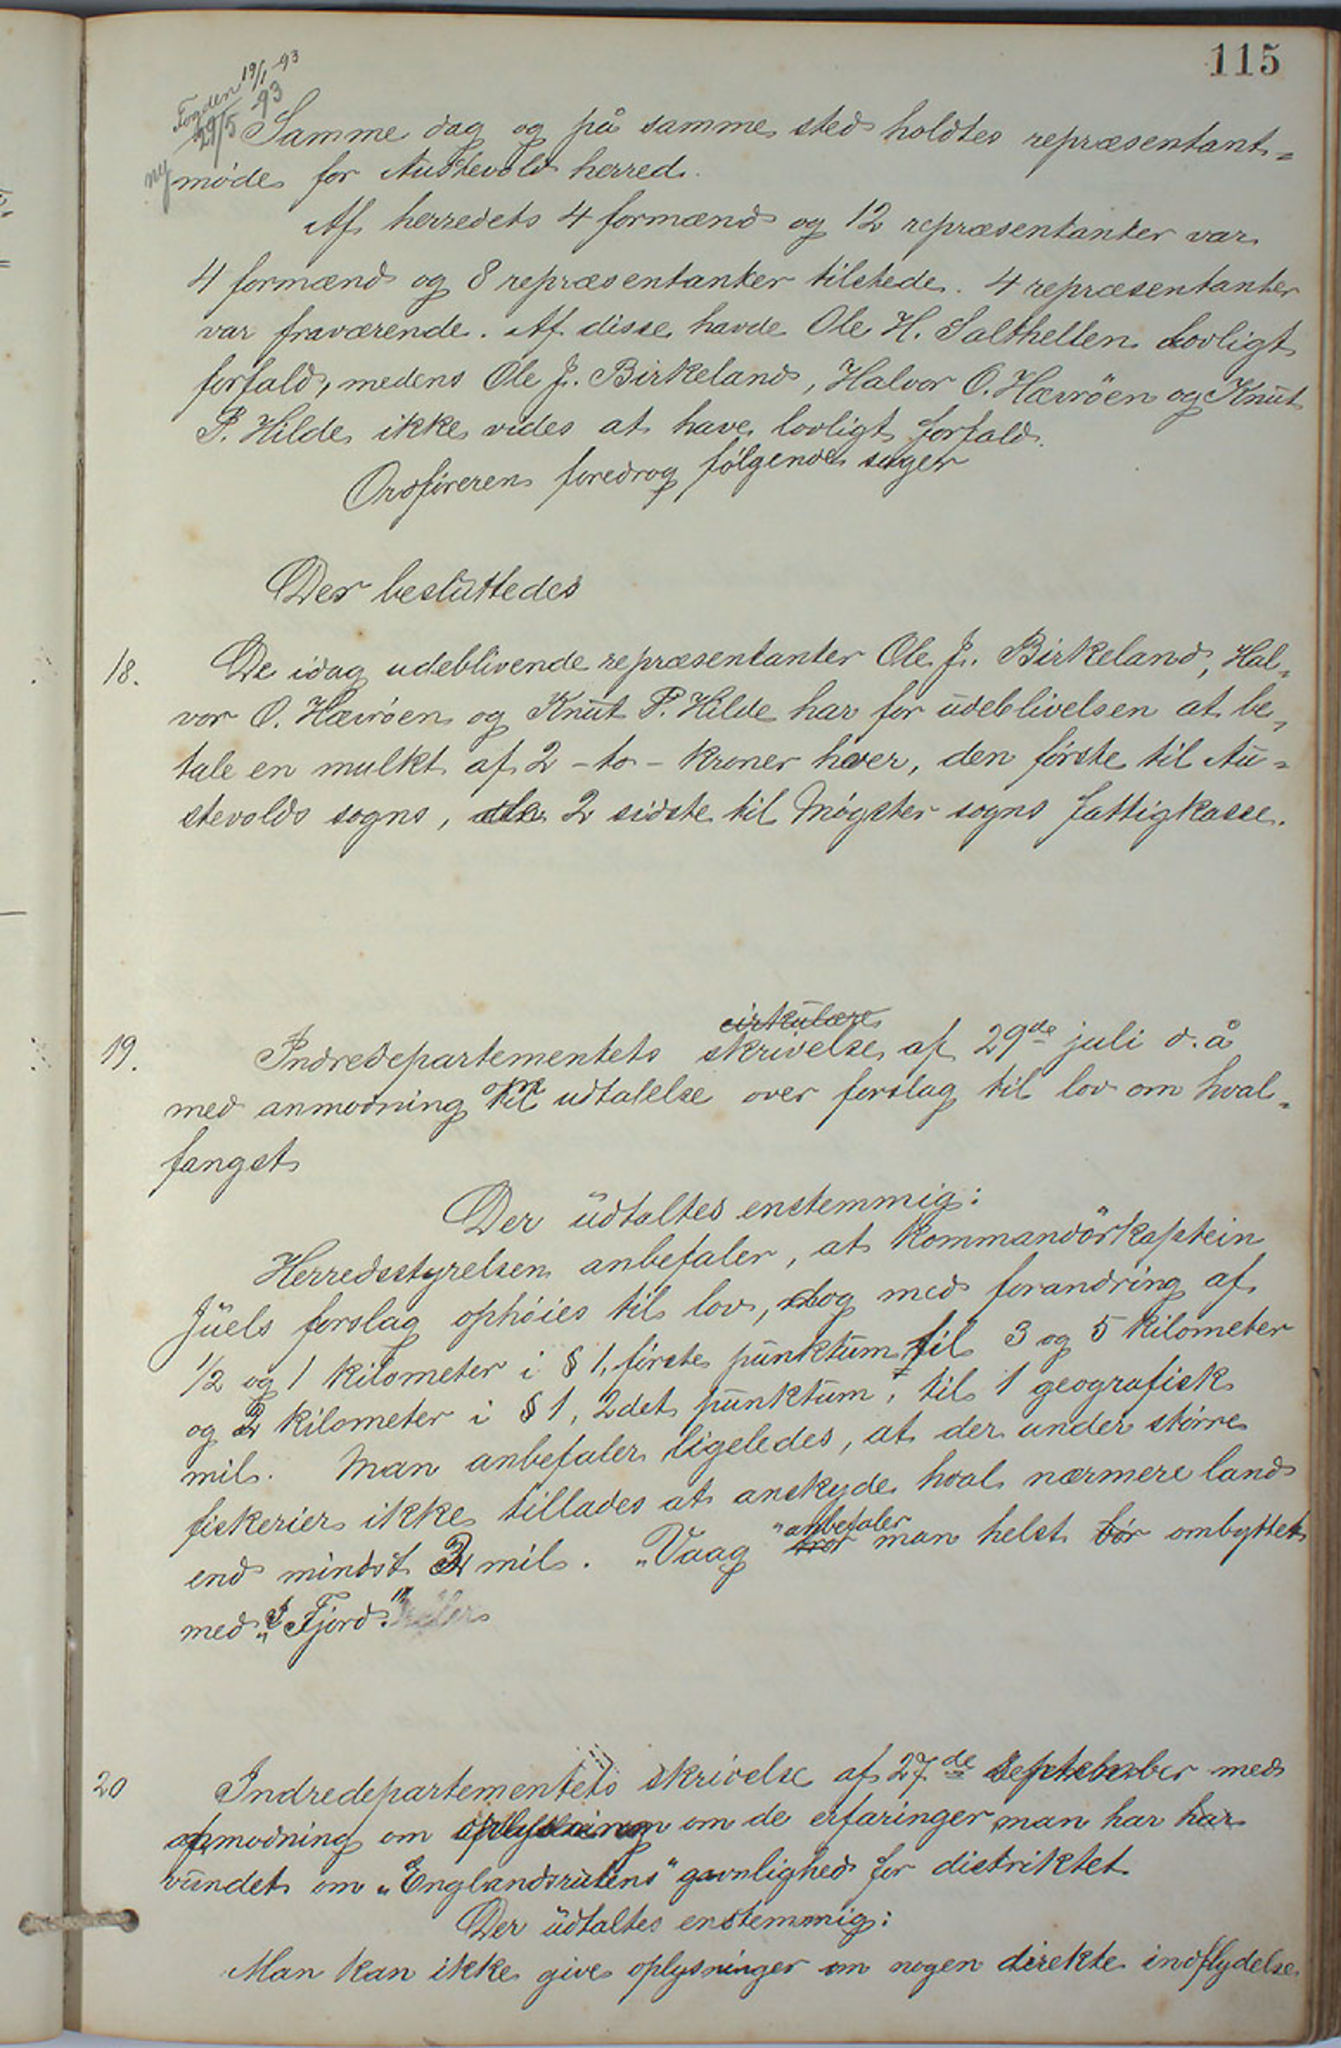 115
Fogden 19/1 93
29/5 93
ny
Samme dag og på samme sted holdtes repræsentant=
møde for Austevold herred.
Af herredets 4 formænd og 12 repræsentanter var
4 formænd og 8 repræsentanter tilstede. 4 repræsentanter
var fraværende. Af disse havde Ole H. Salthellen lovligt
forfald, medens Ole J. Birkeland, Halvor O. Hævrøen og Knut
P. Hilde ikke vides at have lovligt forfald.
Ordføreren foredrog følgende sager
Der besluttedes
18. De idag udeblivende repræsentanter Ole J. Birkeland, Hal=
vor O. Hævrøen og Knut P. Hilde har for udeblivelsen at be=
tale en mulkt af 2 - to - kroner hver, den første til Au=
stevolds sogns, de 2 sidste til Møgster sogns fattigkasse.
cirkulære
19. Indredepartementets skrivelse af 29de juli d. å
med anmodning om udtalelse over forslag til lov om hval=
fangst
Der udtaltes enstemmig:
Herredsstyrelsen anbefaler, at kommandörkaptein
Juels forslag ophöies til lov, dog med forandring af
1/2 og 1 kilometer i § 1, förste punktum til 3 og 5 kilometer
og 2 kilometer i § 1, 2det punktum, til 1 geografisk
mil. Man anbefaler ligeledes, at der under större
fiskerier ikke tillades at anskyde hval nærmere land
end mindst 2 mil. "Vaag" anbefaler man helst bör ombyttet
med "Fjord".
20 Indredepartementets skrivelse af 27de september med
anmodning om oplysning om de erfaringer man har har
vundet om "Englandsrutens" gavnlighed for distriktet
Der udtaltes enstemmig:
Man kan ikke give oplysninger om nogen direkte indflydelse